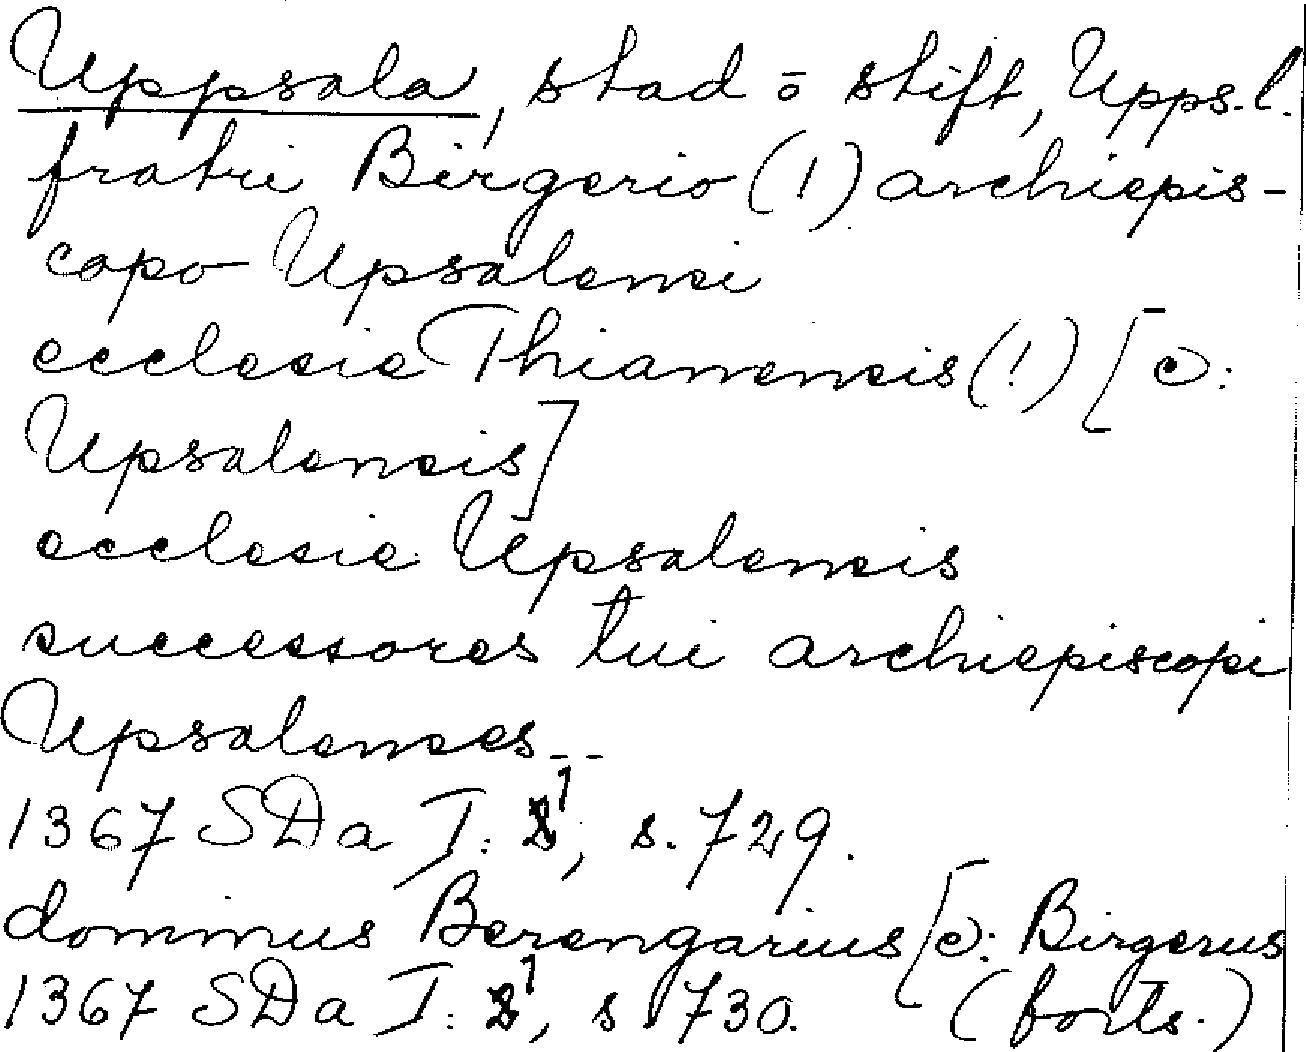 Uppsala, stad o stift, Upps. l.
fratri Birgerio (!) archiepis-
copo Upsalensi
ecclesie Thianensis (!) [ɔ:
Upsalensis]
ecclesie Upsalensis
successores tui archiepiscopi
Upsalenses--
1367 SDa I: 1, s. 729.
dominus Berengarius [ɔ: Birgerus
1367 SDa I: 1, s 730. (forts.)